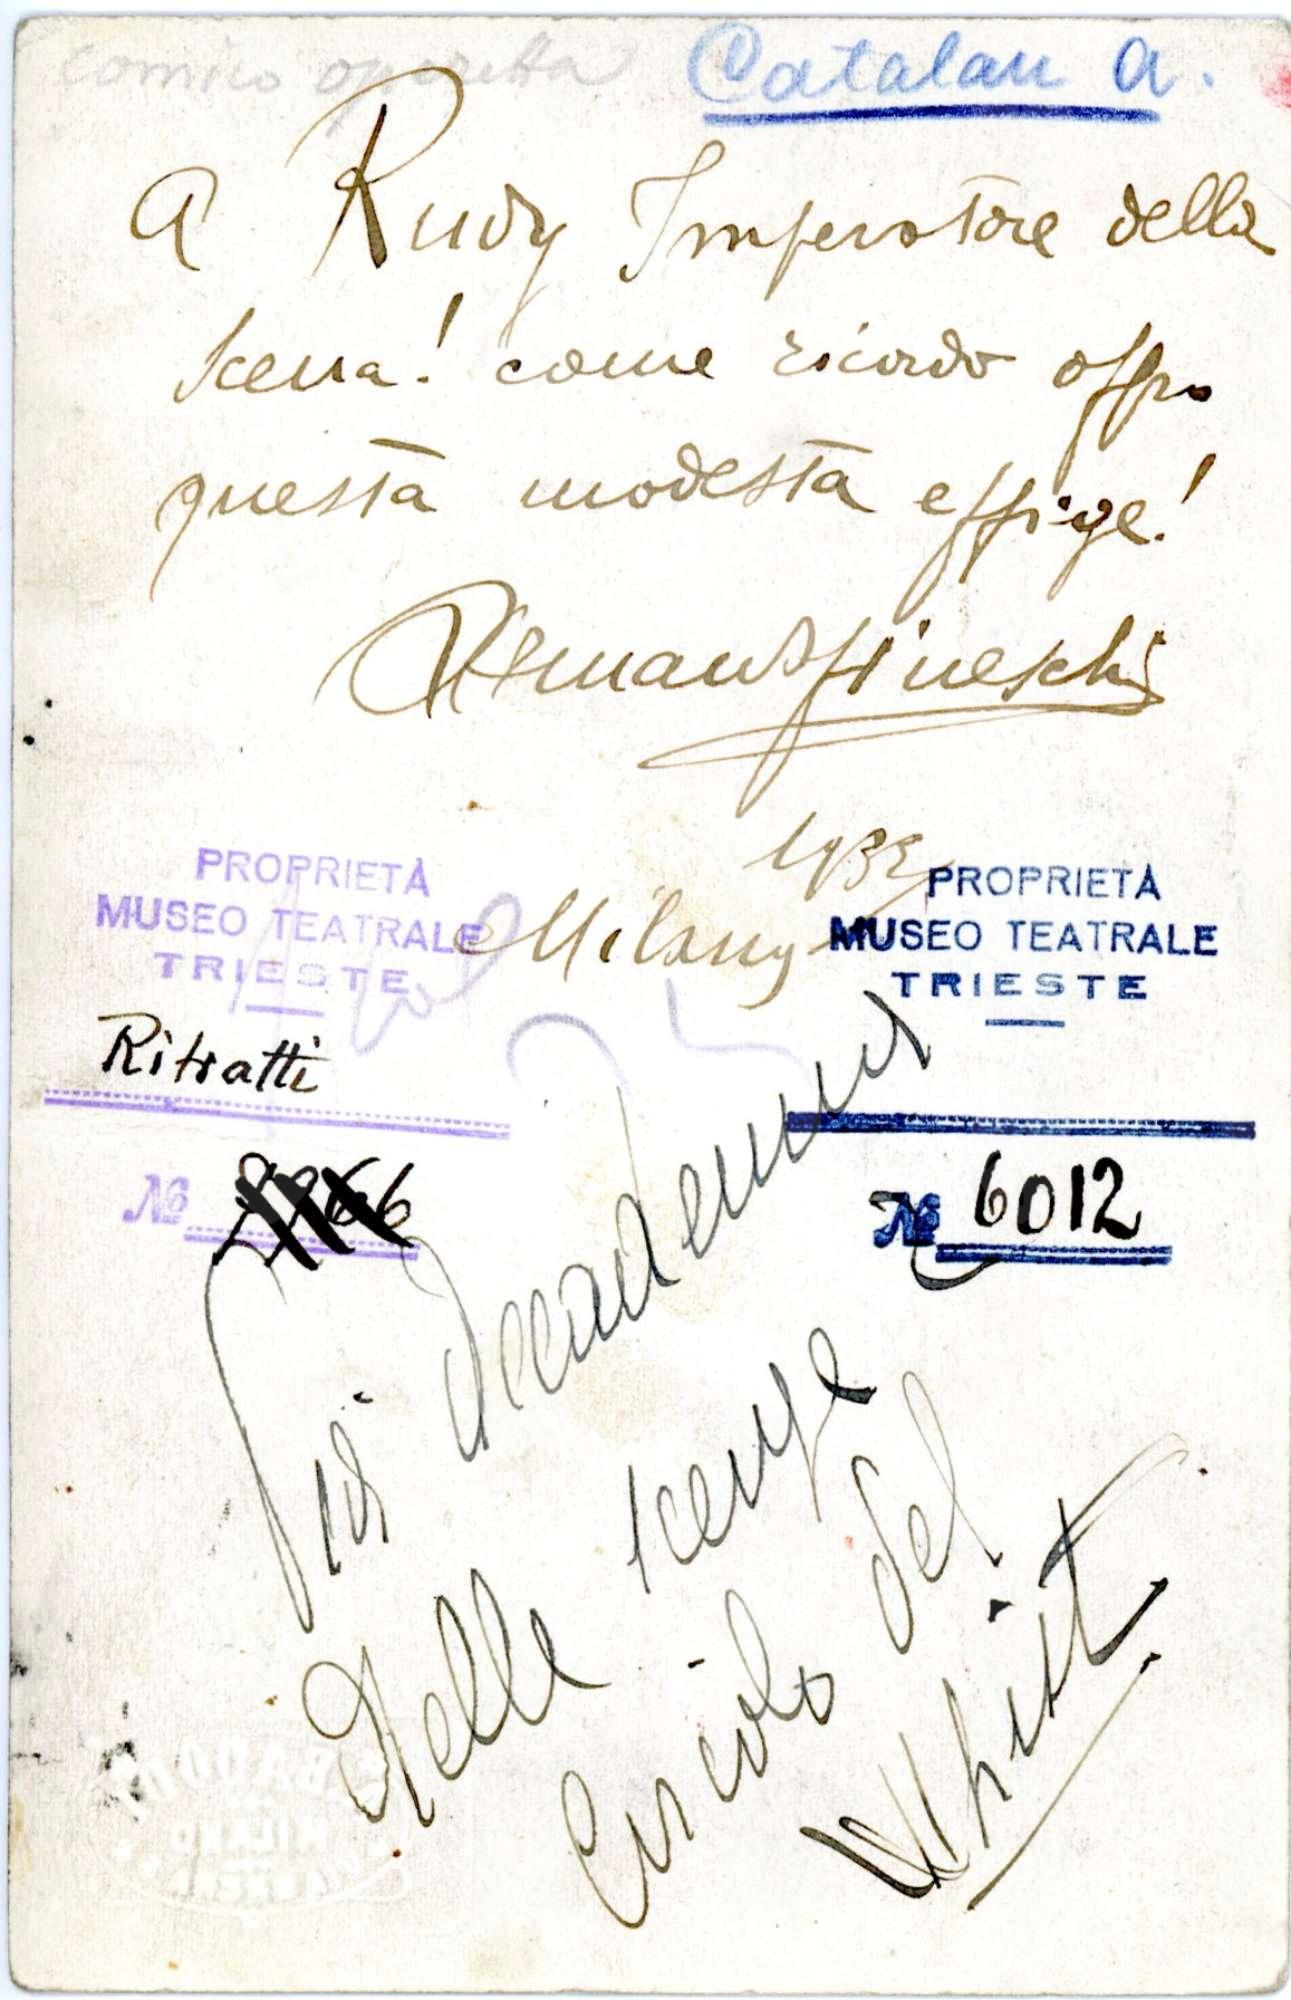 comico operetta
Catalan A.
A Rudy Imperatore della
scena! come ricordo offro
questa modesta effige!
1932
Milano
PROPRIETÀ
MUSEO TEATRALE
TRIESTE
Ritratti
№
PROPRIETÀ
MUSEO TEATRALE
TRIESTE
№ 6012
Delle scenze
Circolo del
Whist
BADODI
MILANO